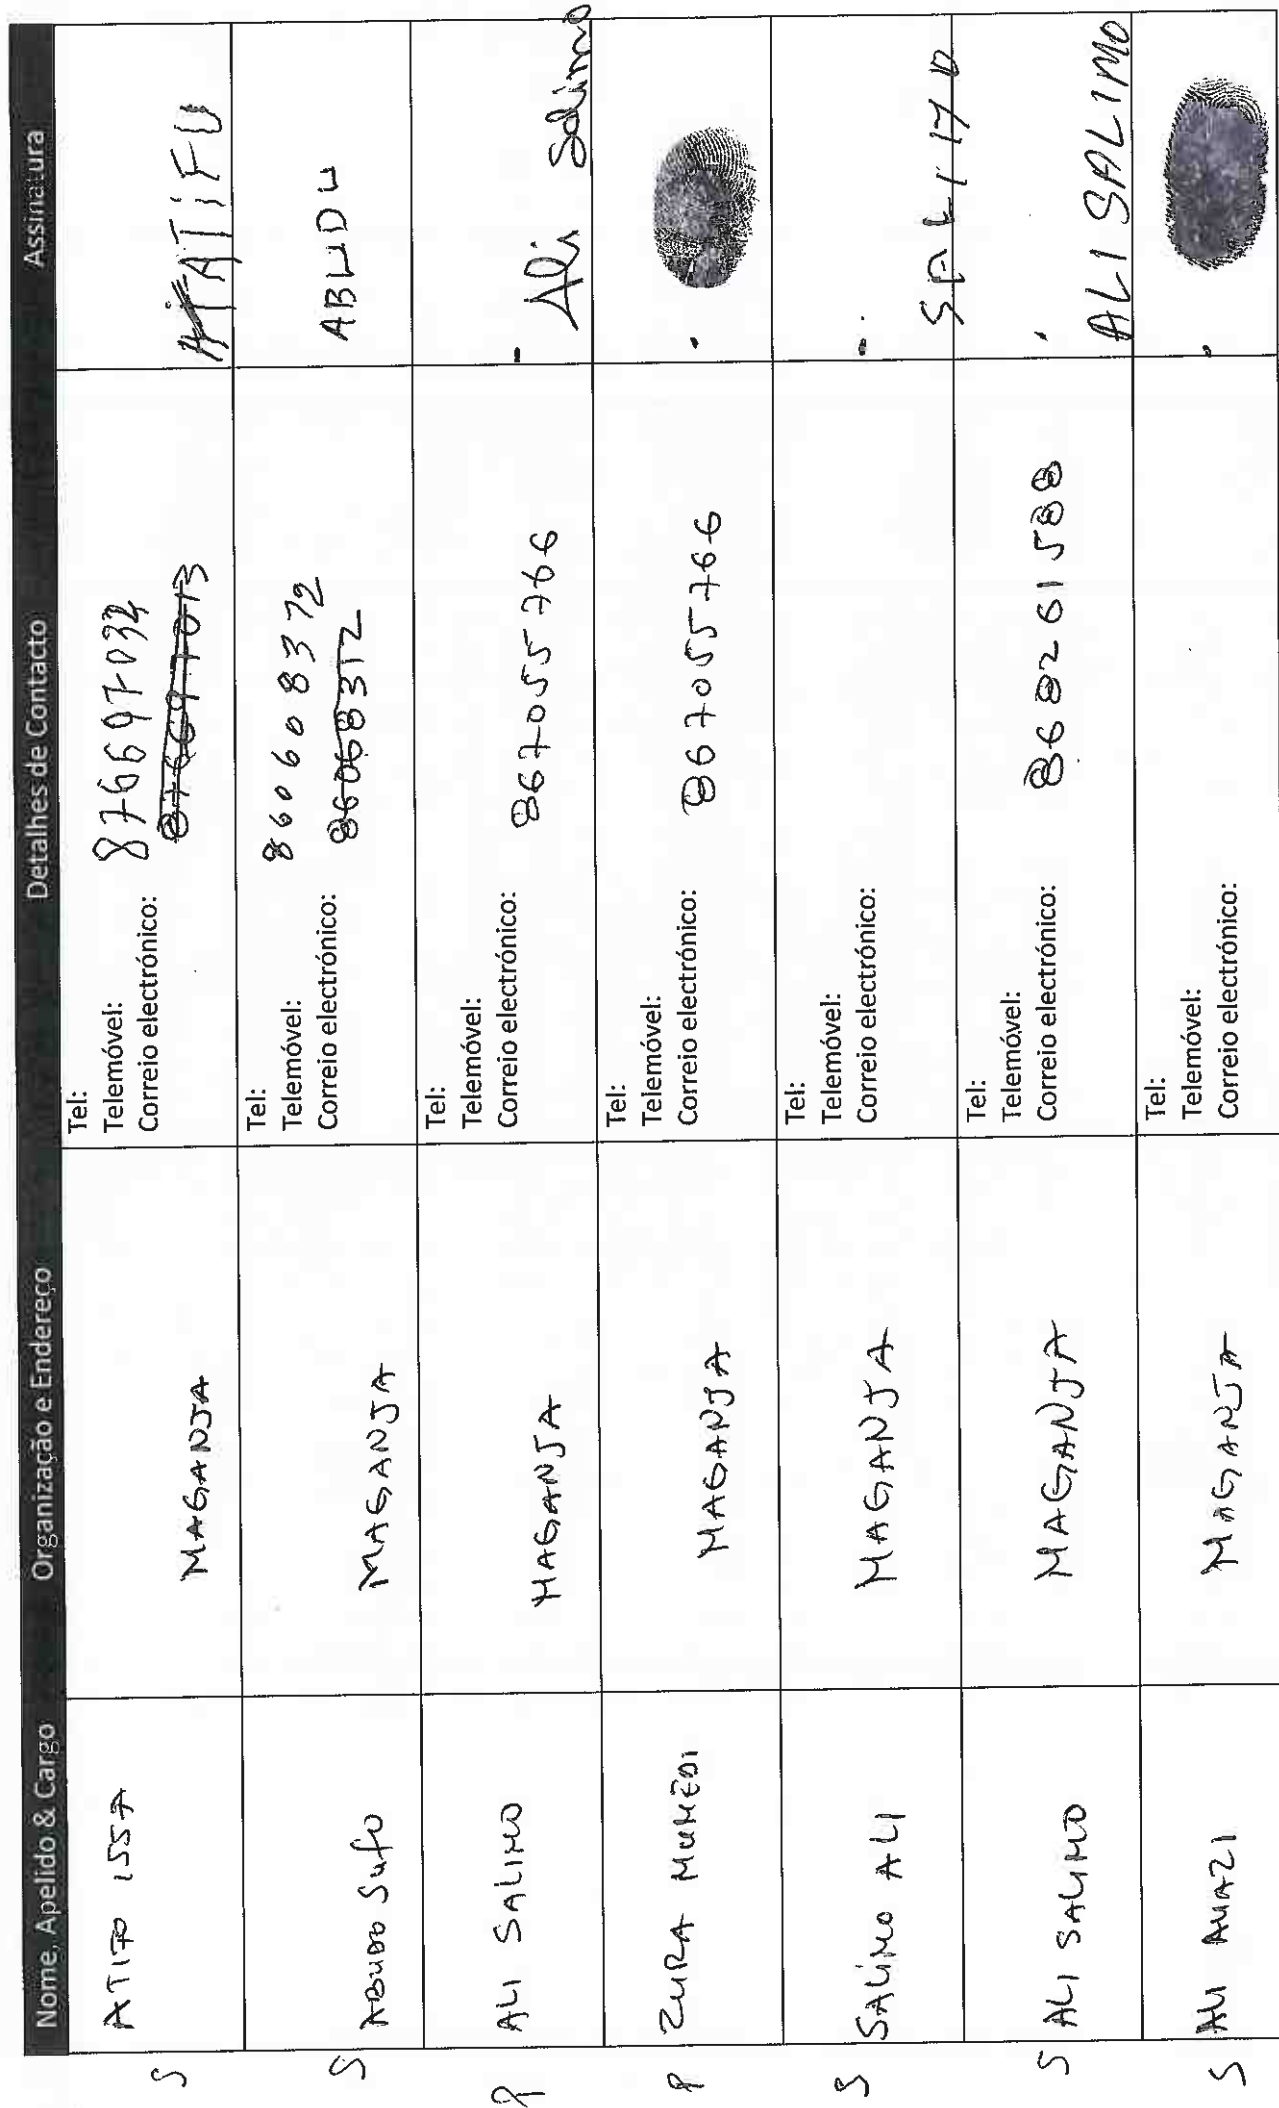 Nome, Apelido & Cargo Organização e Endereço Detalhes de Contacto Assinatura
S ATIFO ISSA MAGANJA
Tel:
Telemóvel: 876697032
Correio electrónico:
ATIFU
S ABUDO Sufo MAGANJA
Tel:
Telemóvel: 860608372
Correio electrónico: 860608312
ABUDU
P ALI SALIMO MAGANJA
Tel:
Telemóvel:
Correio electrónico: 867055766
Ali Salimo
P ZURA MUMEDI MAGANJA
Tel:
Telemóvel:
Correio electrónico: 867055766
S SALIMO ALI MAGANJA
Tel:
Telemóvel:
Correio electrónico:
S ALI SALIMO MAGANJA
Tel:
Telemóvel:
Correio electrónico: 868261588
ALI SALIMO
S ALI AMAZI MAGANJA
Tel:
Telemóvel:
Correio electrónico: